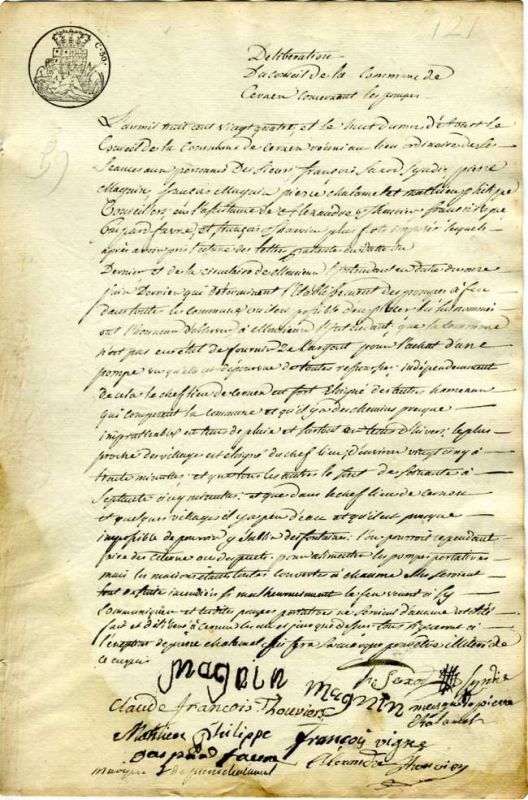 121
C. 50.
Deliberation
Du Conseil de la Commune de
Cernex Concernant les pompes
59
L'an mil huit cent vingt quatre et le huit du mois d'Aoust le
Conseil de la Commune de Cernex réuni au lieu ordinaire de ses
Seances aux personnes Des Sieurs françois Syndic pierre
Magnin Magnin pierre Chatenet et Mathieu philippe
Conseillers, en l'assistance de Alexandre Thouvier francois vigne
Gaspard favre, et françois Thouvier plus forts imposés lesquels
après avoir pris lecture des lettres patentes du
Dernier et de la circulaire de Monsieur l'Intendant en date du onze
juin Dernier qui determinent l'Etablissement des pompes à feu
dans toutes les communes ou il est possible d'en placer les
ont l'honneur d'observer à Monsieur l'Intendant, que la Commune
n'est pas en etat de fournir de l'argent pour l'achat d'une
pompe vu qu'elle est depourvue de toutes ressources independamment
de cela le chef lieu de Cernex est fort Eloigné des autres hameaux
qui composent la commune et qu'il y a des chemins presque
impraticables en tems de pluie et surtout en tems d'hiver, le plus
proche des villages est eloigné du chef lieu d'environ vingt cinq à
trente minutes et que tous les autres le sont de soixante à
Septante cinq minutes, et que dans le chef lieu de Cernex
et quelques villages il y a peu d'eau et qu'il est presque
impossible de pouvoir y établir des fontaines. l'on pourroit cependant
faire des citernes ou des puits, pour alimenter les pompes portatives
mais les maisons etant toutes couvertes à chaume elles seroient
tout de suite incendiées si malheureusement le feu venoit à s'y
communiquer et les dites pompes portatives ne seroient d'aucune utilité
fait et délibéré à Cernex les an et jour que dessus tous signerent à
l'exception de pierre Chatenet qui fera sa marque pour être illitéré
de ce enquis
Magnin
Syndic
Claude François Thouvier
Magnin
marque de pierre
Chatenet
Mathieu Philippe
François vigne
Gaspard favre
Alexandre Thouvier
marque de pierre chatenet